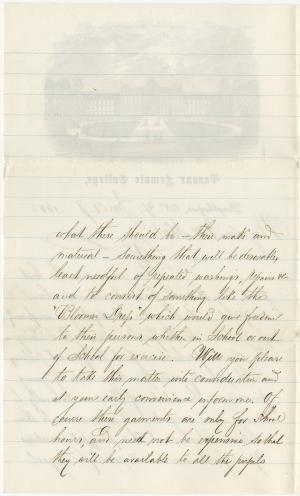 what there should be - their make and
material - something that will be desirable
least needful of repeated washings, repairs &c
and to consist of something like the
"Bloomer Dress" which would give freedom
to their persons whether in School or out
of School for exercise. Will you please
to take this matter into consideration and
at your early convenience inform me. Of
course these garments are only for School
hours, and need not be expensive, so that
they will be available to all the pupils